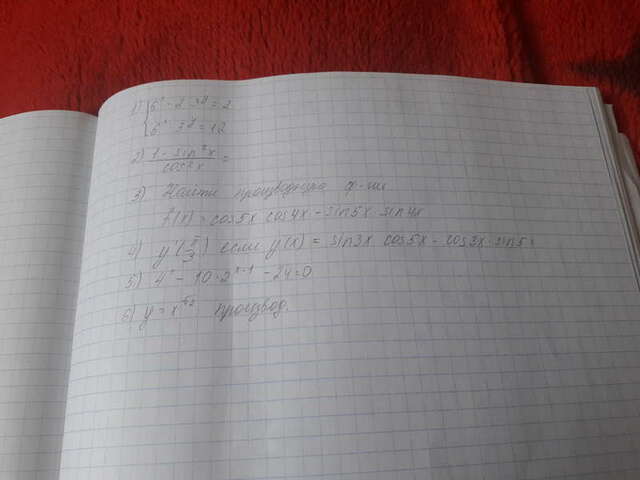 1) { 6ˣ - 2 · 3ʸ = 2
6ˣ · 3ʸ = 12
2) (1 - sin²x)/cos²x =
3) Найти производную ф-ии
f(x) = cos5x cos4x - sin5x sin4x
4) y'(π/3) если y(x) = sin3x cos5x - cos3x sin5x
5) 4ˣ - 10 · 2ˣ⁻¹ - 24 = 0
6) y = x производ.